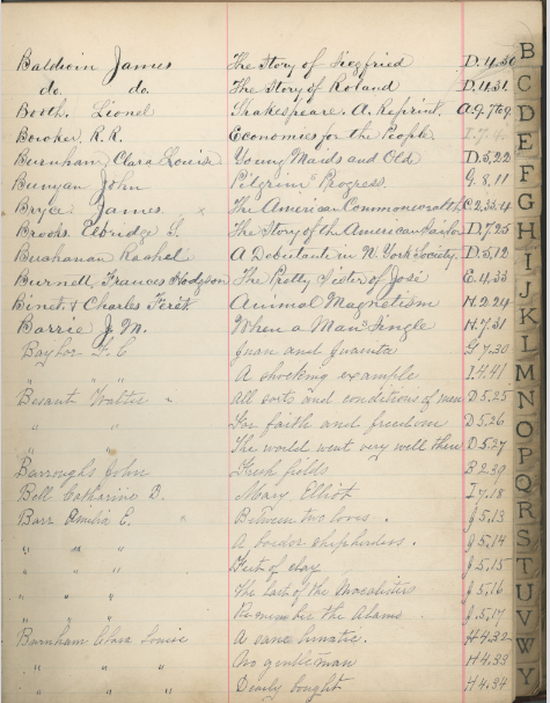 Baldwin James The Story of Siegfried D.4.30
do. do. The Story of Roland D.4.31
Booth. Lionel Shakespeare. A. Reprint. A.9.7to9.
Bowker, R.R. Economics for the People. I.7.4.
Burnham, Clara Louise Young Maids and Old D.5,22
Bunyan John Pilgrims Progress. G.8.11
Bryce James. x The American Commonwealth C.2.33.4
Brooks Elbridge S. The Story of the American Sailor D.7.25
Buchanan Rachel A Debutante in N. York Society. D.5,12
Burnett, Frances Hodgson The Pretty Sister of José E.4.33
Binet & Charles Feré. Animal Magnetism H.2.24
Barrie J. M. When a Man's Single H.7.31
Baylor F. C Juan and Juanita G 7.30
" " A shocking example I.4.41
Besant Walter " All sorts and conditions of men D 5.25
" " For faith and freedom D 5.26
The world went very well then D.5.27
Burroughs John Fresh fields B 2.39
Bell Catharine D. Mary Elliot I 7.18
Barr Amelia E. x Between two loves. J 5.13
" " " A border shepherdess. J 5.14
" " " Feet of clay J 5.15
" " " The last of the Macalisters J 5.16
" " " Remember the Alamo J 5.17
Burnham Clara Louise A sane lunatic. H 4.32
" " " No gentleman H 4.33
" " " Dearly bought H 4.34
B
C
D
E
F
G
H
I
J
K
L
M
N
O
P
Q
R
S
T
U
V
W
Y